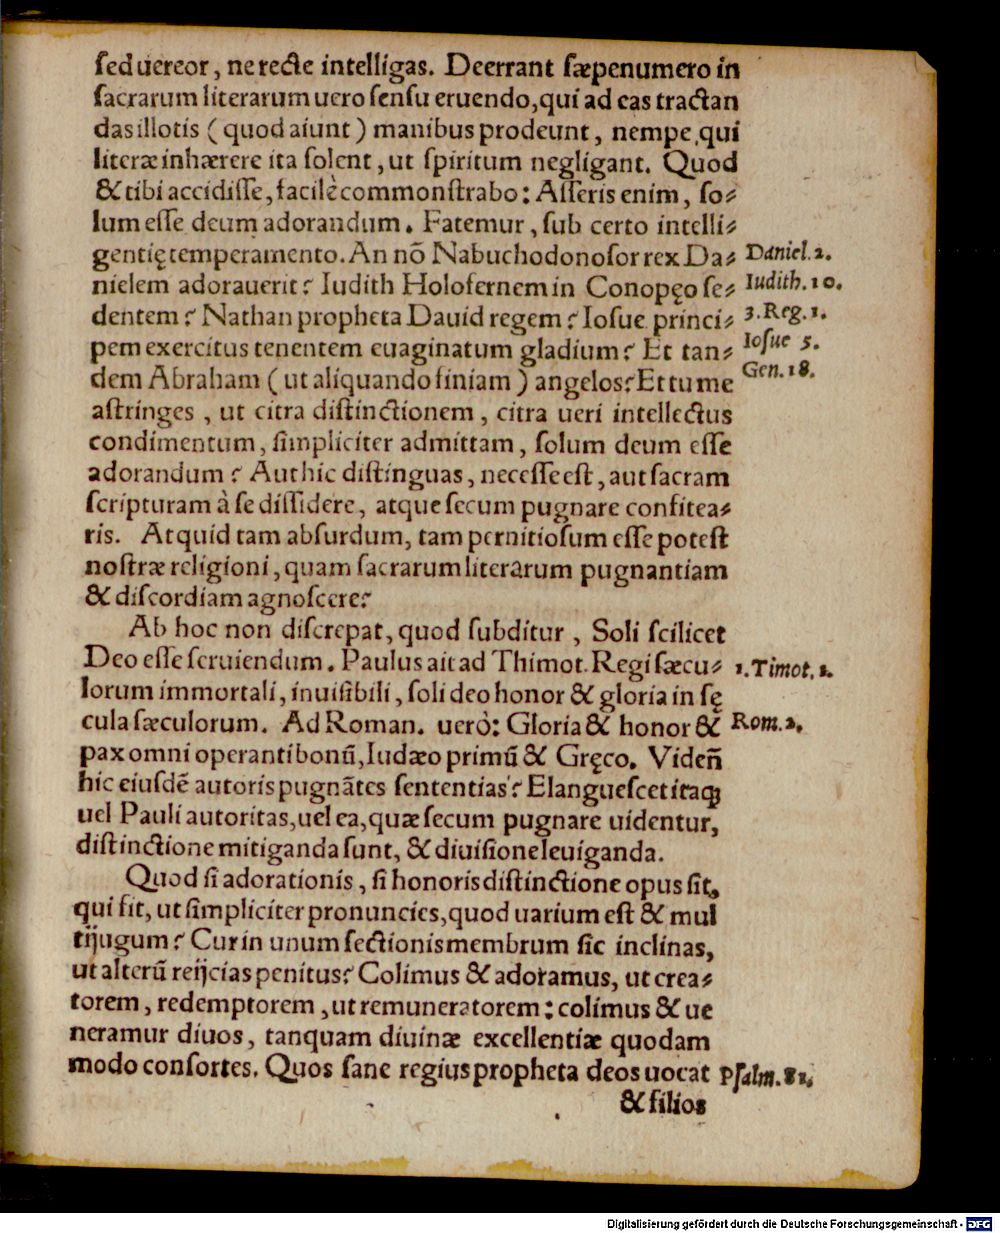 ſed uereor, ne recte intelligas. Deerrant ſæpenumero in
ſacrarum literarum uero ſenſu eruendo, qui ad eas tractan
das illotis (quod aiunt) manibus prodeunt, nempe qui
literæ inhærere ita ſolent, ut ſpiritum negligant. Quod
& tibi accidiſſe, facilè commonſtrabo: Aſſeris enim, ſo⸗
lum eſſe deum adorandum. Fatemur, ſub certo intelli⸗
gentię temperamento. An nõ Nabuchodonoſor rex Da⸗ Daniel. 2.
nielem adorauerit? Iudith Holofernem in Conopęo ſe⸗ Iudith. 10.
dentem? Nathan propheta Dauid regem? Ioſue princi⸗ 3. Reg. 1.
pem exercitus tenentem euaginatum gladium? Et tan⸗ Ioſue 5.
dem Abraham (ut aliquando finiam) angelos? Et tu me Gen. 18.
aſtringes, ut citra diſtinctionem, citra ueri intellectus
condimentum, ſimpliciter admittam, ſolum deum eſſe
adorandum? Aut hic diſtinguas, neceſſe eſt, aut ſacram
ſcripturam à ſe diſſidere, atque ſecum pugnare confitea⸗
ris. At quid tam abſurdum, tam pernitioſum eſſe poteſt
noſtræ religioni, quam ſacrarum literarum pugnantiam
& diſcordiam agnoſcere?
Ab hoc non diſcrepat, quod ſubditur, Soli ſcilicet
Deo eſſe ſeruiendum. Paulus ait ad Thimot. Regi ſæcu⸗ 1. Timot. 1.
lorum immortali, inuiſibili, ſoli deo honor & gloria in ſę
cula ſæculorum. Ad Roman. uerò: Gloria & honor & Rom. 2.
pax omni operanti bonũ, Iudæo primũ & Gręco. Videñ
hic eiuſdẽ autoris pugnãtes ſententias? Elangueſcet itaq;
uel Pauli autoritas, uel ea, quæ ſecum pugnare uidentur,
diſtinctione mitiganda ſunt, & diuiſione leuiganda.
Quod ſi adorationis, ſi honoris diſtinctione opus ſit,
qui fit, ut ſimpliciter pronuncies, quod uarium eſt & mul
tijugum? Cur in unum ſectionis membrum ſic inclinas,
ut alterũ reijcias penitus? Colimus & adoramus, ut crea⸗
torem, redemptorem, ut remuneratorem: colimus & ue
neramur diuos, tanquam diuinæ excellentiæ quodam
modo conſortes. Quos ſane regius propheta deos uocat Pſalm. 81.
& filios
Digitalisierung gefördert durch die Deutsche Forschungsgemeinschaft - DFG